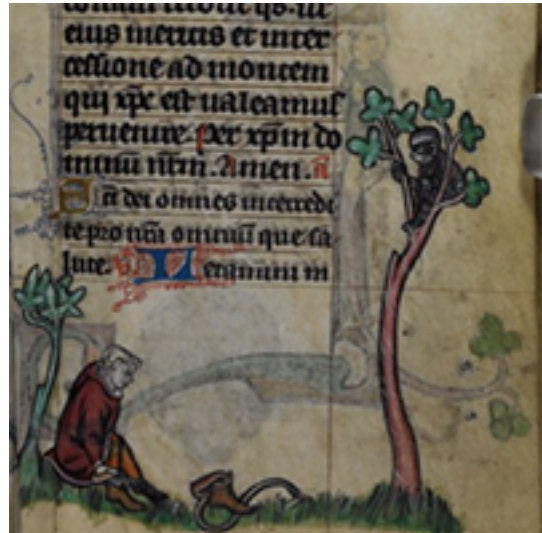 eius meritis et inter
cessione ad montem
qui xp̄c est ualeamus
peruenire. Per xp̄m do
minū nr̄m. Amen. a
Sc̄i dei omnes intercedi
te pro nr̄a omniū que sa
lute.
Letamini in